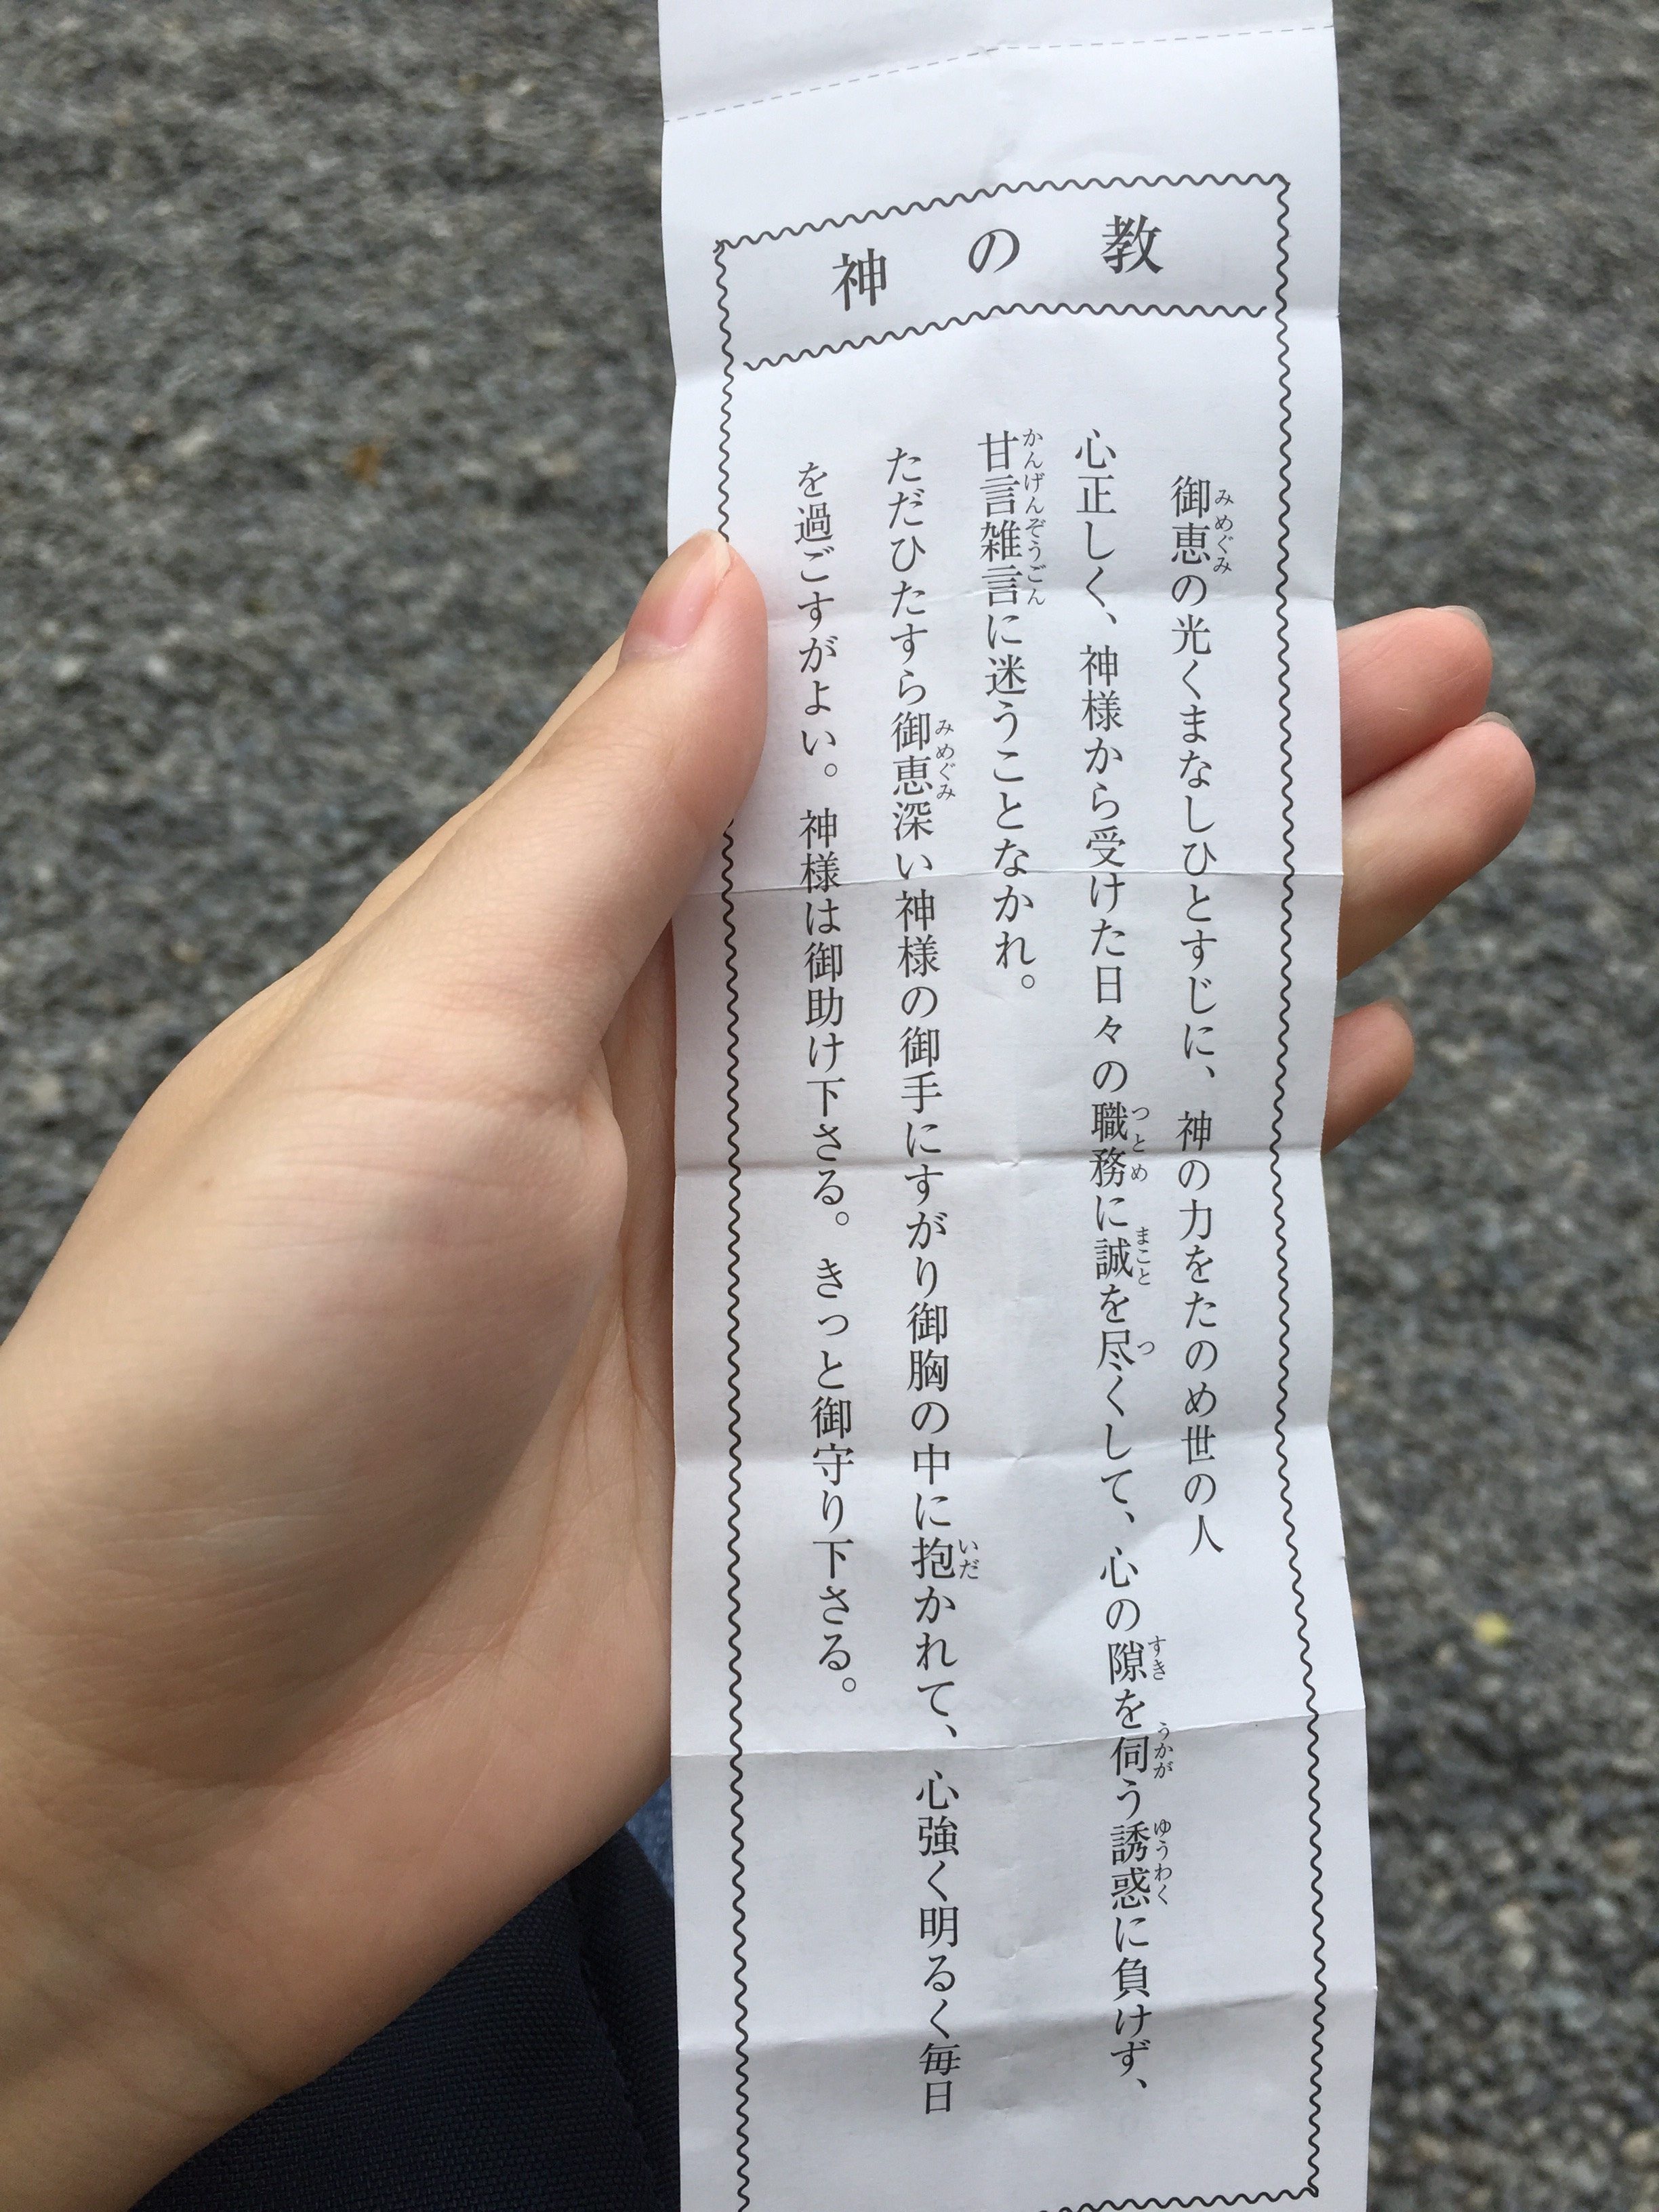 神の教
御恵の光くまなしひとすじに、神の力をたのめ世の人
心正しく、神様から受けた日々の職務に誠を尽くして、心の隙を伺う誘惑に負けず、
甘言雑言に迷うことなかれ。
ただひたすら御恵深い神様の御手にすがり御胸の中に抱かれて、心強く明るく毎日
を過ごすがよい。神様は御助け下さる。きっと御守り下さる。